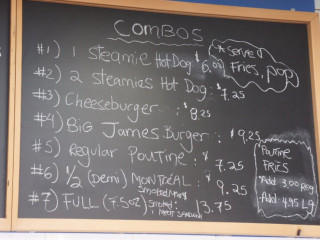 COMBOS
* Served Fries, pop
#1) 1 steamie Hot Dog $6.00
#2) 2 steamies Hot Dog: $7.25
#3) Cheeseburger : $8.25
#4) BiG James Burger : $9.25
#5) Regular Poutine : $7.25
#6) 1/2 (Demi) MONTREAL : $9.25
Smoked Meat
#7) FULL (7.5oz) Smoked : 13.75
MEAT SANDWICH
Poutine
FRIES
Add 3.00 Reg
Add 4.95 Lg